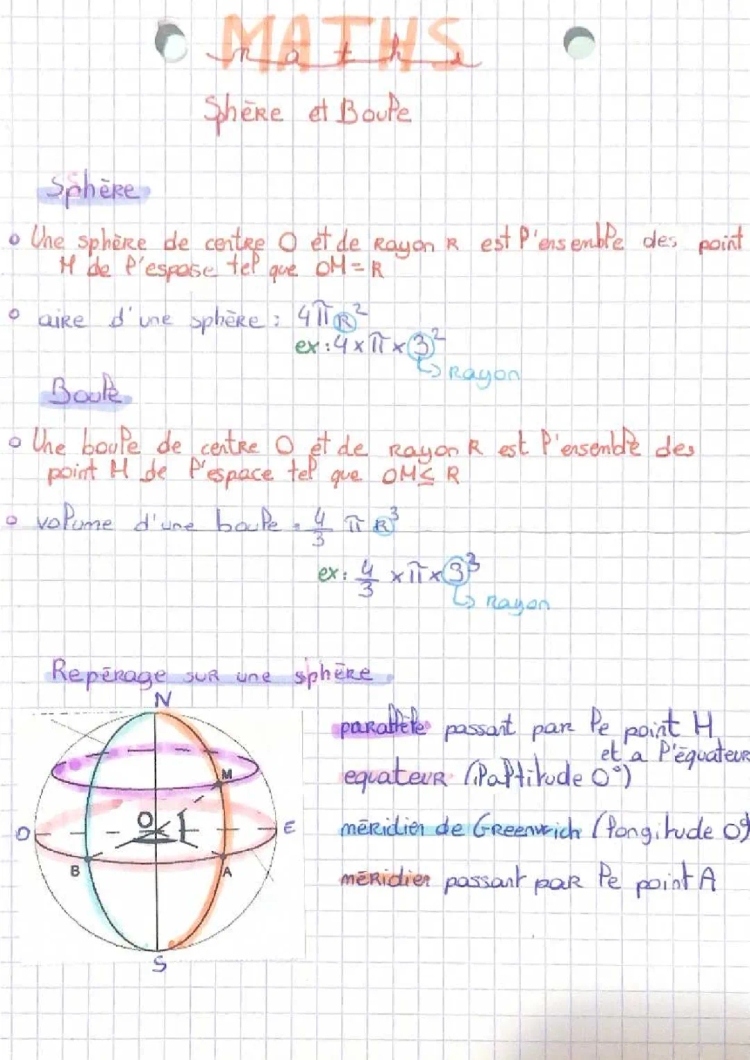 MATHS
maths
Sphère et Boule
Sphère
Une sphère de centre O et de Rayon R est l'ensemble des point
M de l'espase tel que OM = R
aire d'une sphère : 4πR²
ex : 4 × π × 3²
↳ Rayon
Boule
Une boule de centre O et de rayon R est l'ensemble des
point M de l'espace tel que OM ≤ R
volume d'une boule = 4/3 π R³
ex : 4/3 × π × 3³
↳ rayon
Repérage sur une sphère
N
parallèle passant par le point M
et a l'équateur
M
equateur (laltitude 0°)
O
O
E
méridien de Greenwich (longitude 0°)
B
A
méridien passant par le point A
S